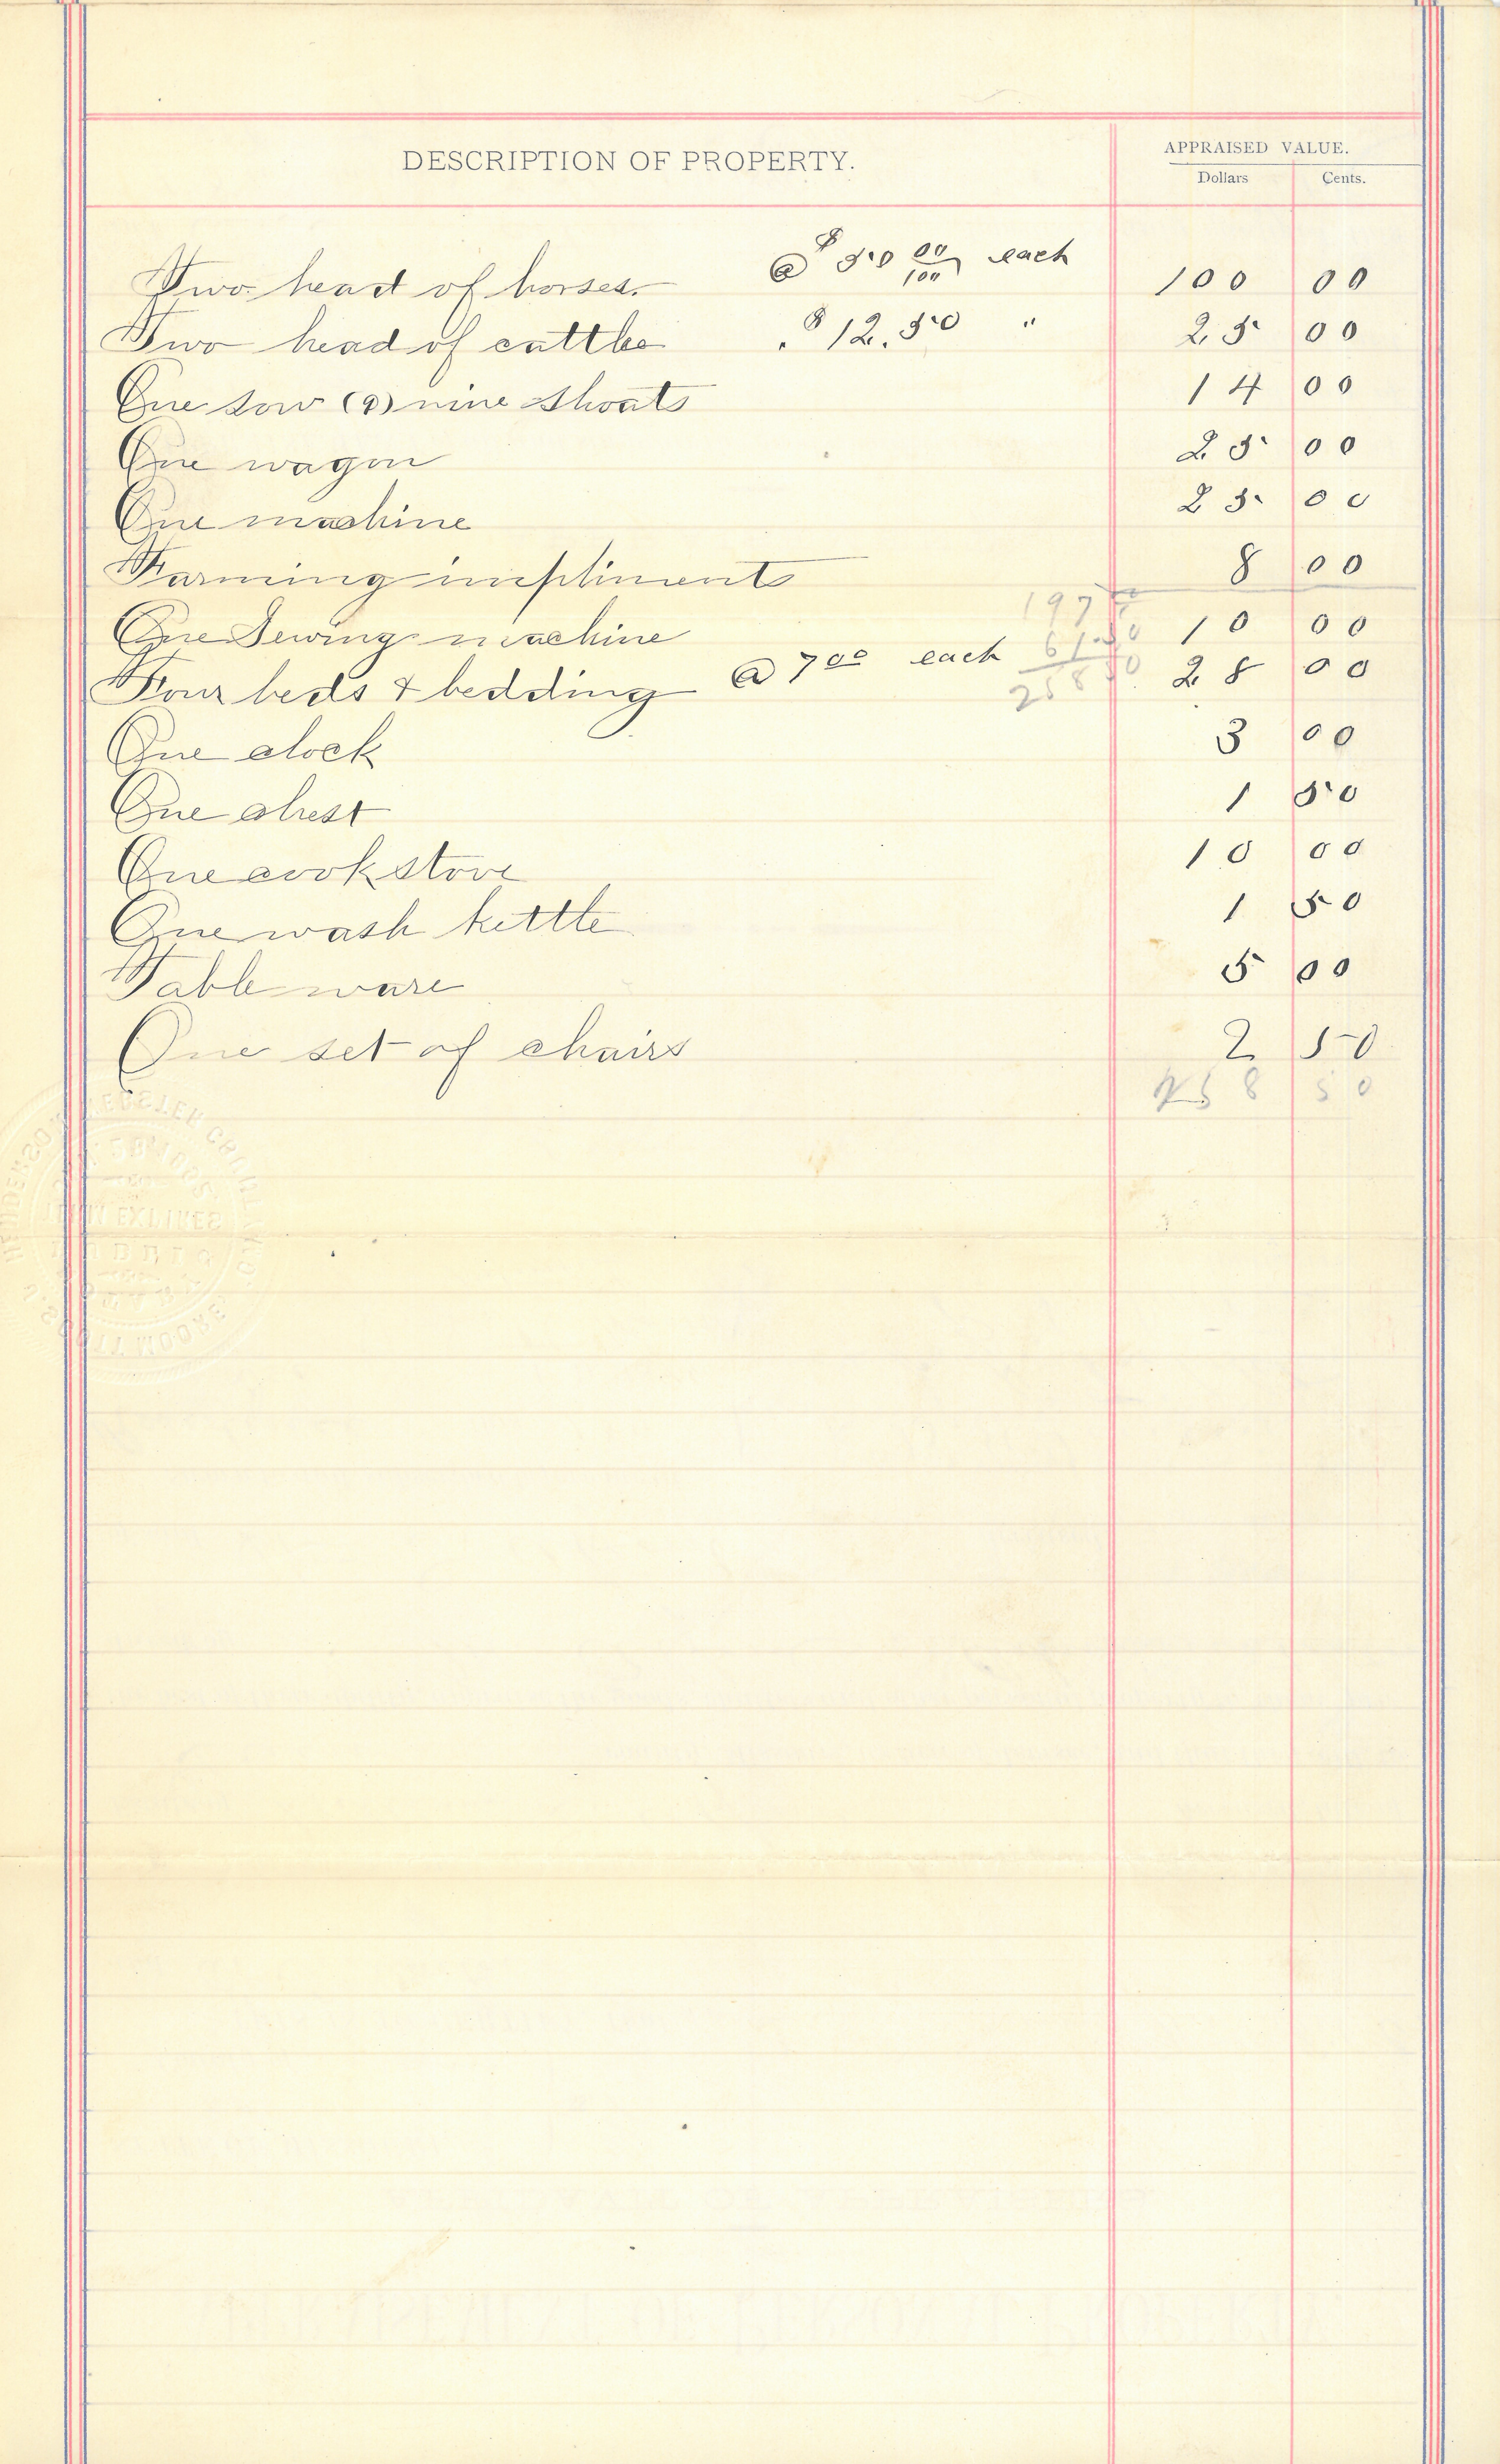 DESCRIPTION OF PROPERTY.
APPRAISED VALUE.
Dollars Cents.
Two head of horses. @ $50 00/100 each 100 00
Two head of cattle " $12.50 " 25 00
One sow (9) nine shoats 14 00
One wagon 25 00
One machine 25 00
Farming impliments 8 00
197
One Sewing machine 61.50 10 00
Four beds & bedding @ 7 00 each 258 50 28 00
One clock 3 00
One chest 1 50
One cook stove 10 00
One wash kettle 1 50
Table ware 5 00
One set of chairs 2 50
258 50